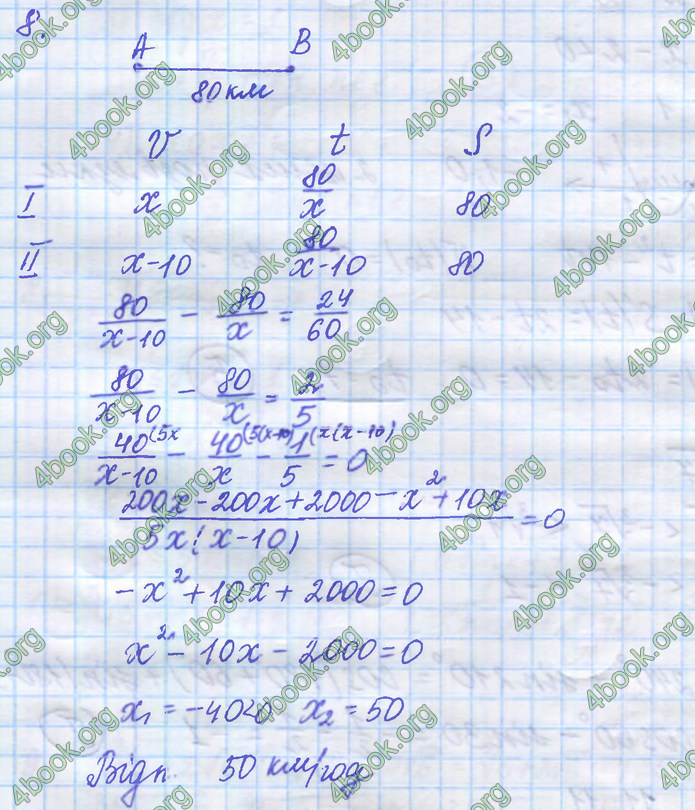 8.
A B
80 км
v t S
I x 80/x 80
II x-10 80/(x-10) 80
80/(x-10) - 80/x = 24/60
80/(x-10) - 80/x = 2/5
40/(x-10) (5x - 40/x (5(x-10) - 1/5 (x(x-10) = 0
(200x - 200x + 2000 - x² + 10x)/(5x(x-10)) = 0
-x² + 10x + 2000 = 0
x² - 10x - 2000 = 0
x₁ = -40<0 x₂ = 50
Відп. 50 км/год
4book.org